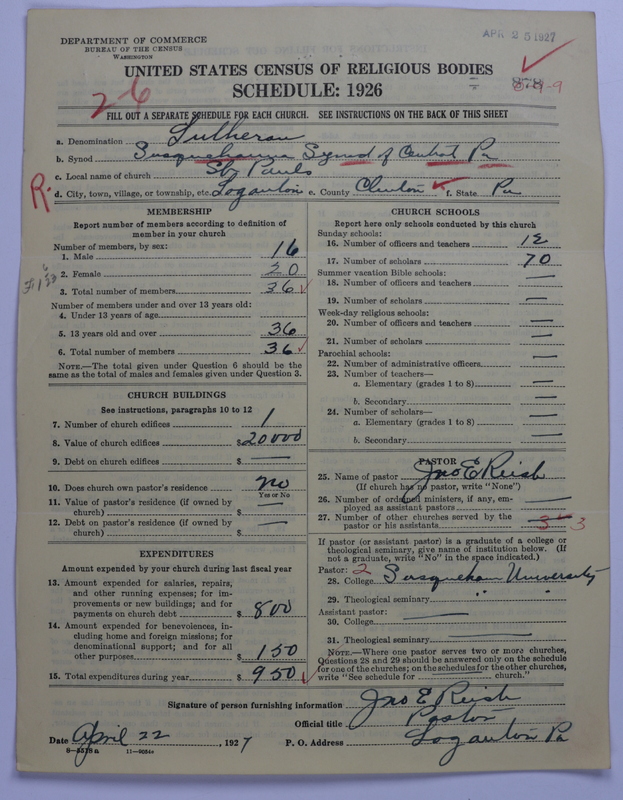 DEPARTMENT OF COMMERCE
BUREAU OF THE CENSUS
WASHINGTON
APR 25 1927
UNITED STATES CENSUS OF RELIGIOUS BODIES
SCHEDULE: 1926
26
FILL OUT A SEPARATE SCHEDULE FOR EACH CHURCH. SEE INSTRUCTIONS ON THE BACK OF THIS SHEET
a. Denomination Lutheran
b. Synod Susquehanna Synod of Central Pa
c. Local name of church St Pauls
R.
d. City, town, village, or township, etc. Loganton e. County Clinton f. State Pa
MEMBERSHIP
Report number of members according to definition of member in your church
Number of members, by sex:
1. Male 16
2. Female 20
3. Total number of members 36
Number of members under and over 13 years old:
4. Under 13 years of age
5. 13 years old and over 36
6. Total number of members 36
NOTE.—The total given under Question 6 should be the same as the total of males and females given under Question 3.
CHURCH BUILDINGS
See instructions, paragraphs 10 to 12
7. Number of church edifices 1
8. Value of church edifices $20000
9. Debt on church edifices $ —
10. Does church own pastor's residence no
Yes or No
11. Value of pastor's residence (if owned by church) $ —
12. Debt on pastor's residence (if owned by church) $ —
EXPENDITURES
Amount expended by your church during last fiscal year
13. Amount expended for salaries, repairs, and other running expenses; for improvements or new buildings; and for payments on church debt $ 800
14. Amount expended for benevolences, including home and foreign missions; for denominational support; and for all other purposes $ 150
15. Total expenditures during year $ 950
CHURCH SCHOOLS
Report here only schools conducted by this church
Sunday schools:
16. Number of officers and teachers 12
17. Number of scholars 70
Summer vacation Bible schools:
18. Number of officers and teachers —
19. Number of scholars —
Week-day religious schools:
20. Number of officers and teachers —
21. Number of scholars —
Parochial schools:
22. Number of administrative officers —
23. Number of teachers—
a. Elementary (grades 1 to 8) —
b. Secondary —
24. Number of scholars—
a. Elementary (grades 1 to 8) —
b. Secondary —
PASTOR
25. Name of pastor Jno E Reish
(If church has no pastor, write "None")
26. Number of ordained ministers, if any, employed as assistant pastors —
27. Number of other churches served by the pastor or his assistants 3 3
If pastor (or assistant pastor) is a graduate of a college or theological seminary, give name of institution below. (If not a graduate, write "No" in the space indicated.)
Pastor: 2
28. College Susquehanna University
29. Theological seminary " "
Assistant pastor:
30. College —
31. Theological seminary —
NOTE.—Where one pastor serves two or more churches, Questions 28 and 29 should be answered only on the schedule for one of the churches; on the schedules for the other churches, write "See schedule for ---- church."
Signature of person furnishing information Jno E Reish
Official title Pastor
Date April 22, 1927 P. O. Address Loganton Pa
8—5518a 11—9054a